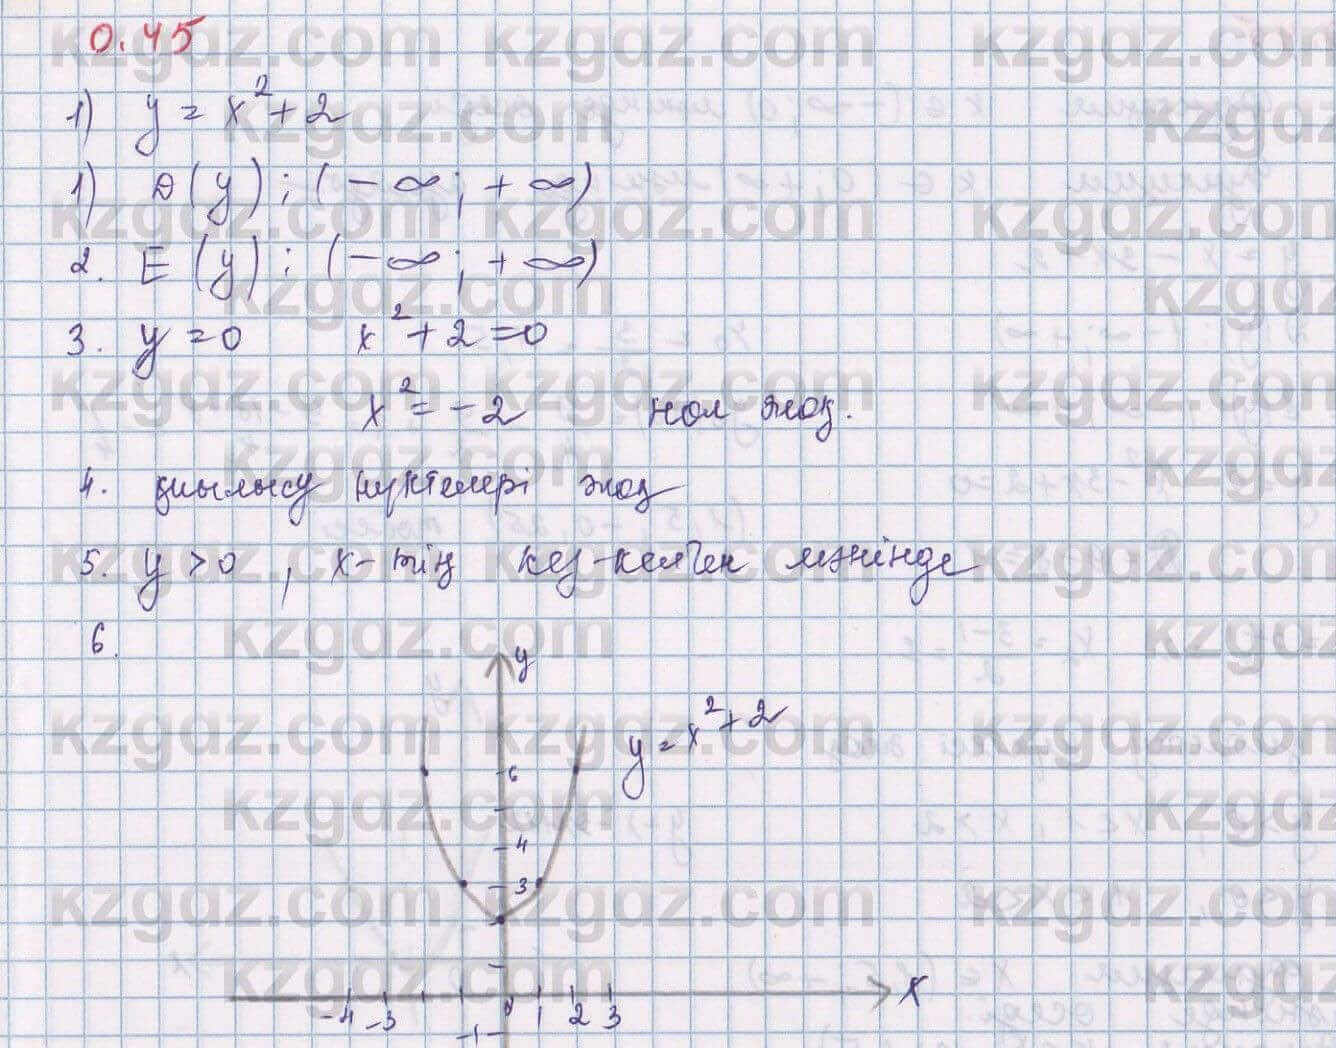 0.45
1) y = x² + 2
1) D(y) ; (-∞ ; +∞)
2. E(y) ; (-∞ ; +∞)
3. y = 0 x² + 2 = 0
x² = -2 нол жоқ.
4. қиылысу нүктелері жоқ
5. y > 0 , x-тің кез-келген мәнінде
6.
y
y = x² + 2
6
4
3
-4 -3 0 1 2 3 x
-1
kzgdz.com